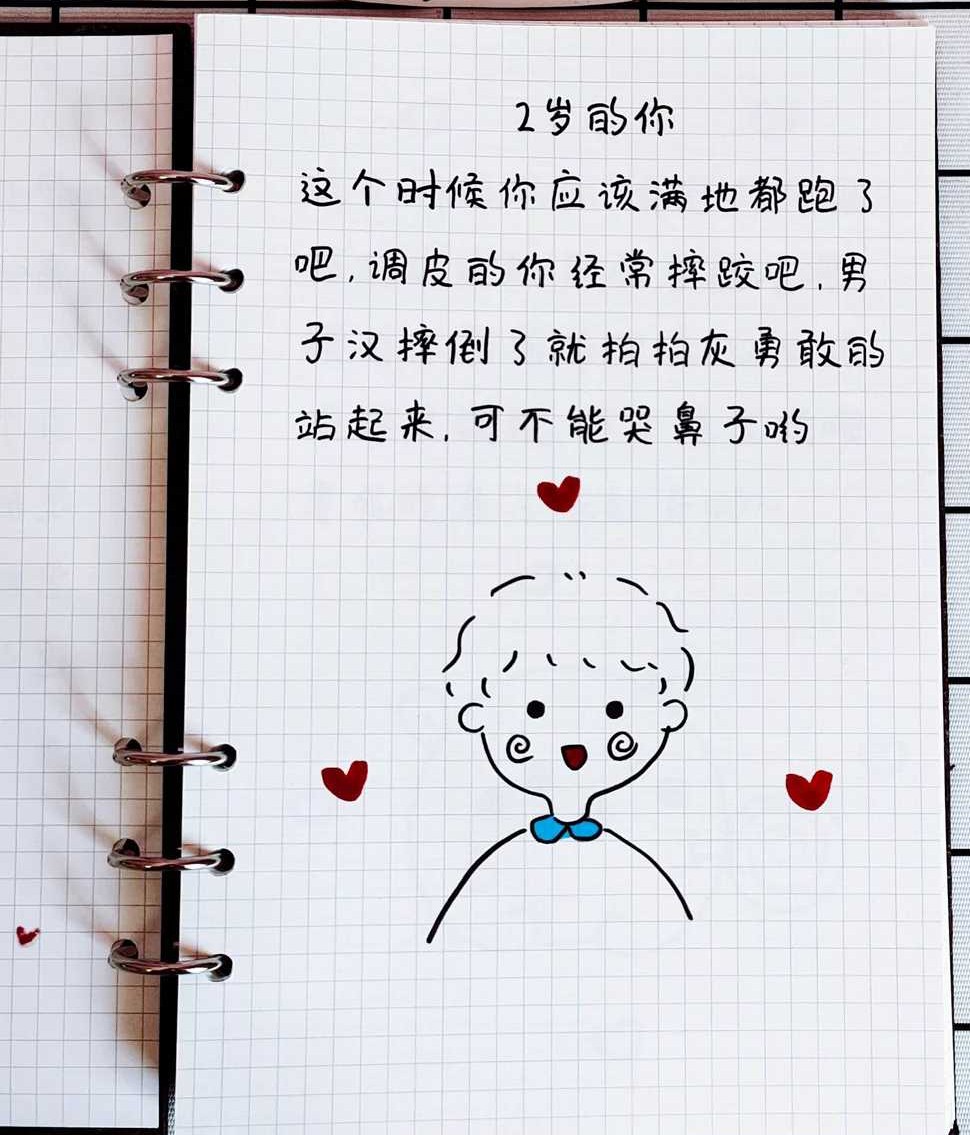 2岁的你
这个时候你应该满地都跑了
吧,调皮的你经常摔跤吧,男
子汉摔倒了就拍拍灰勇敢的
站起来,可不能哭鼻子哟